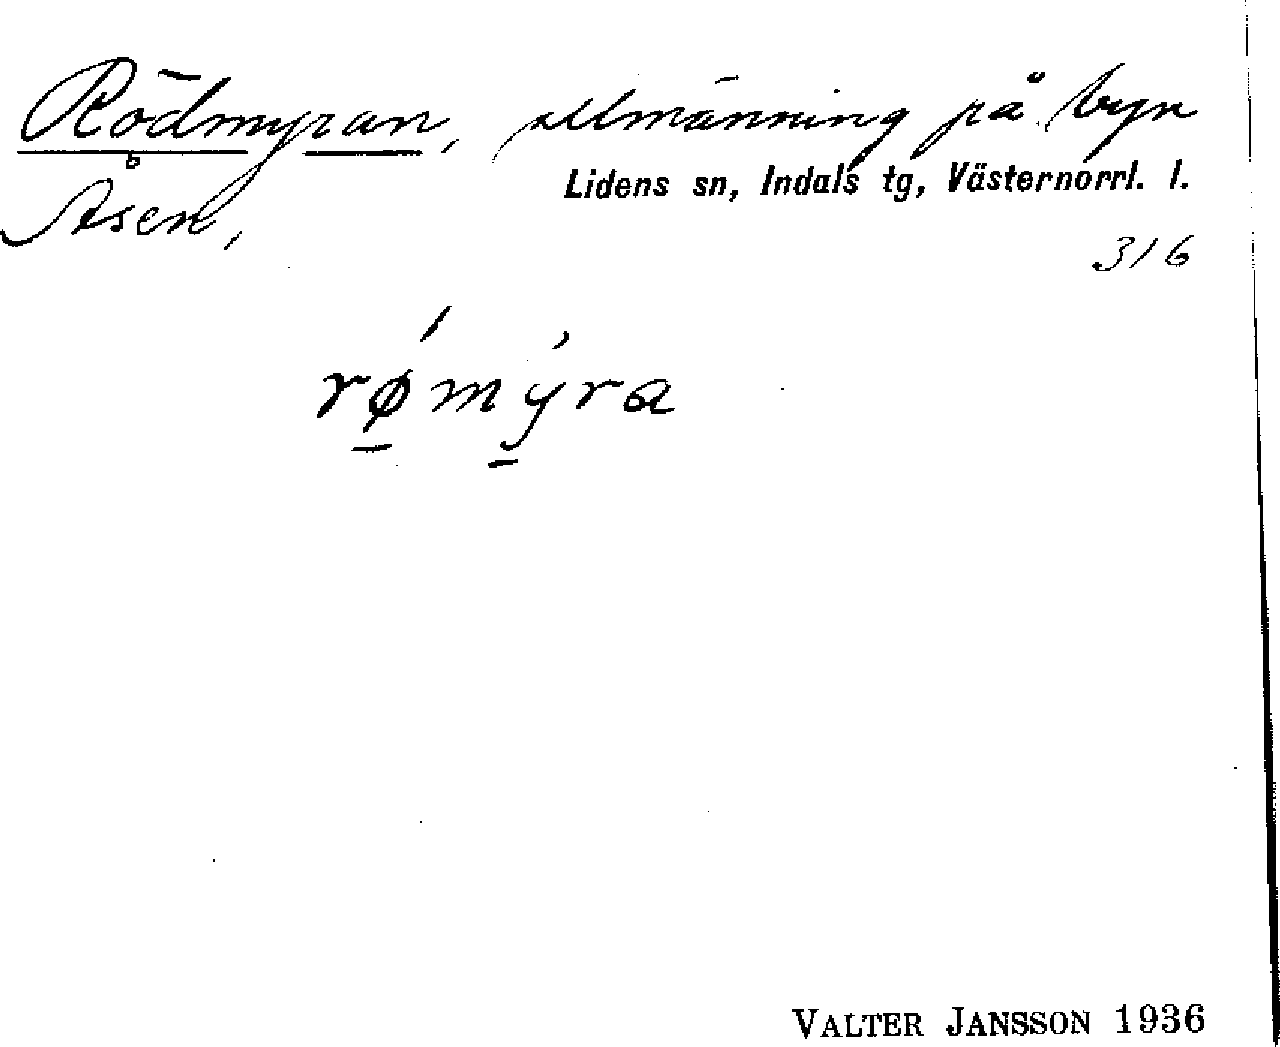 Rödmyran, allmänning på byn
Lidens sn, Indals tg, Västernorrl. l.
Åsen,
316
rǿ̲mý̲ra
VALTER JANSSON 1936